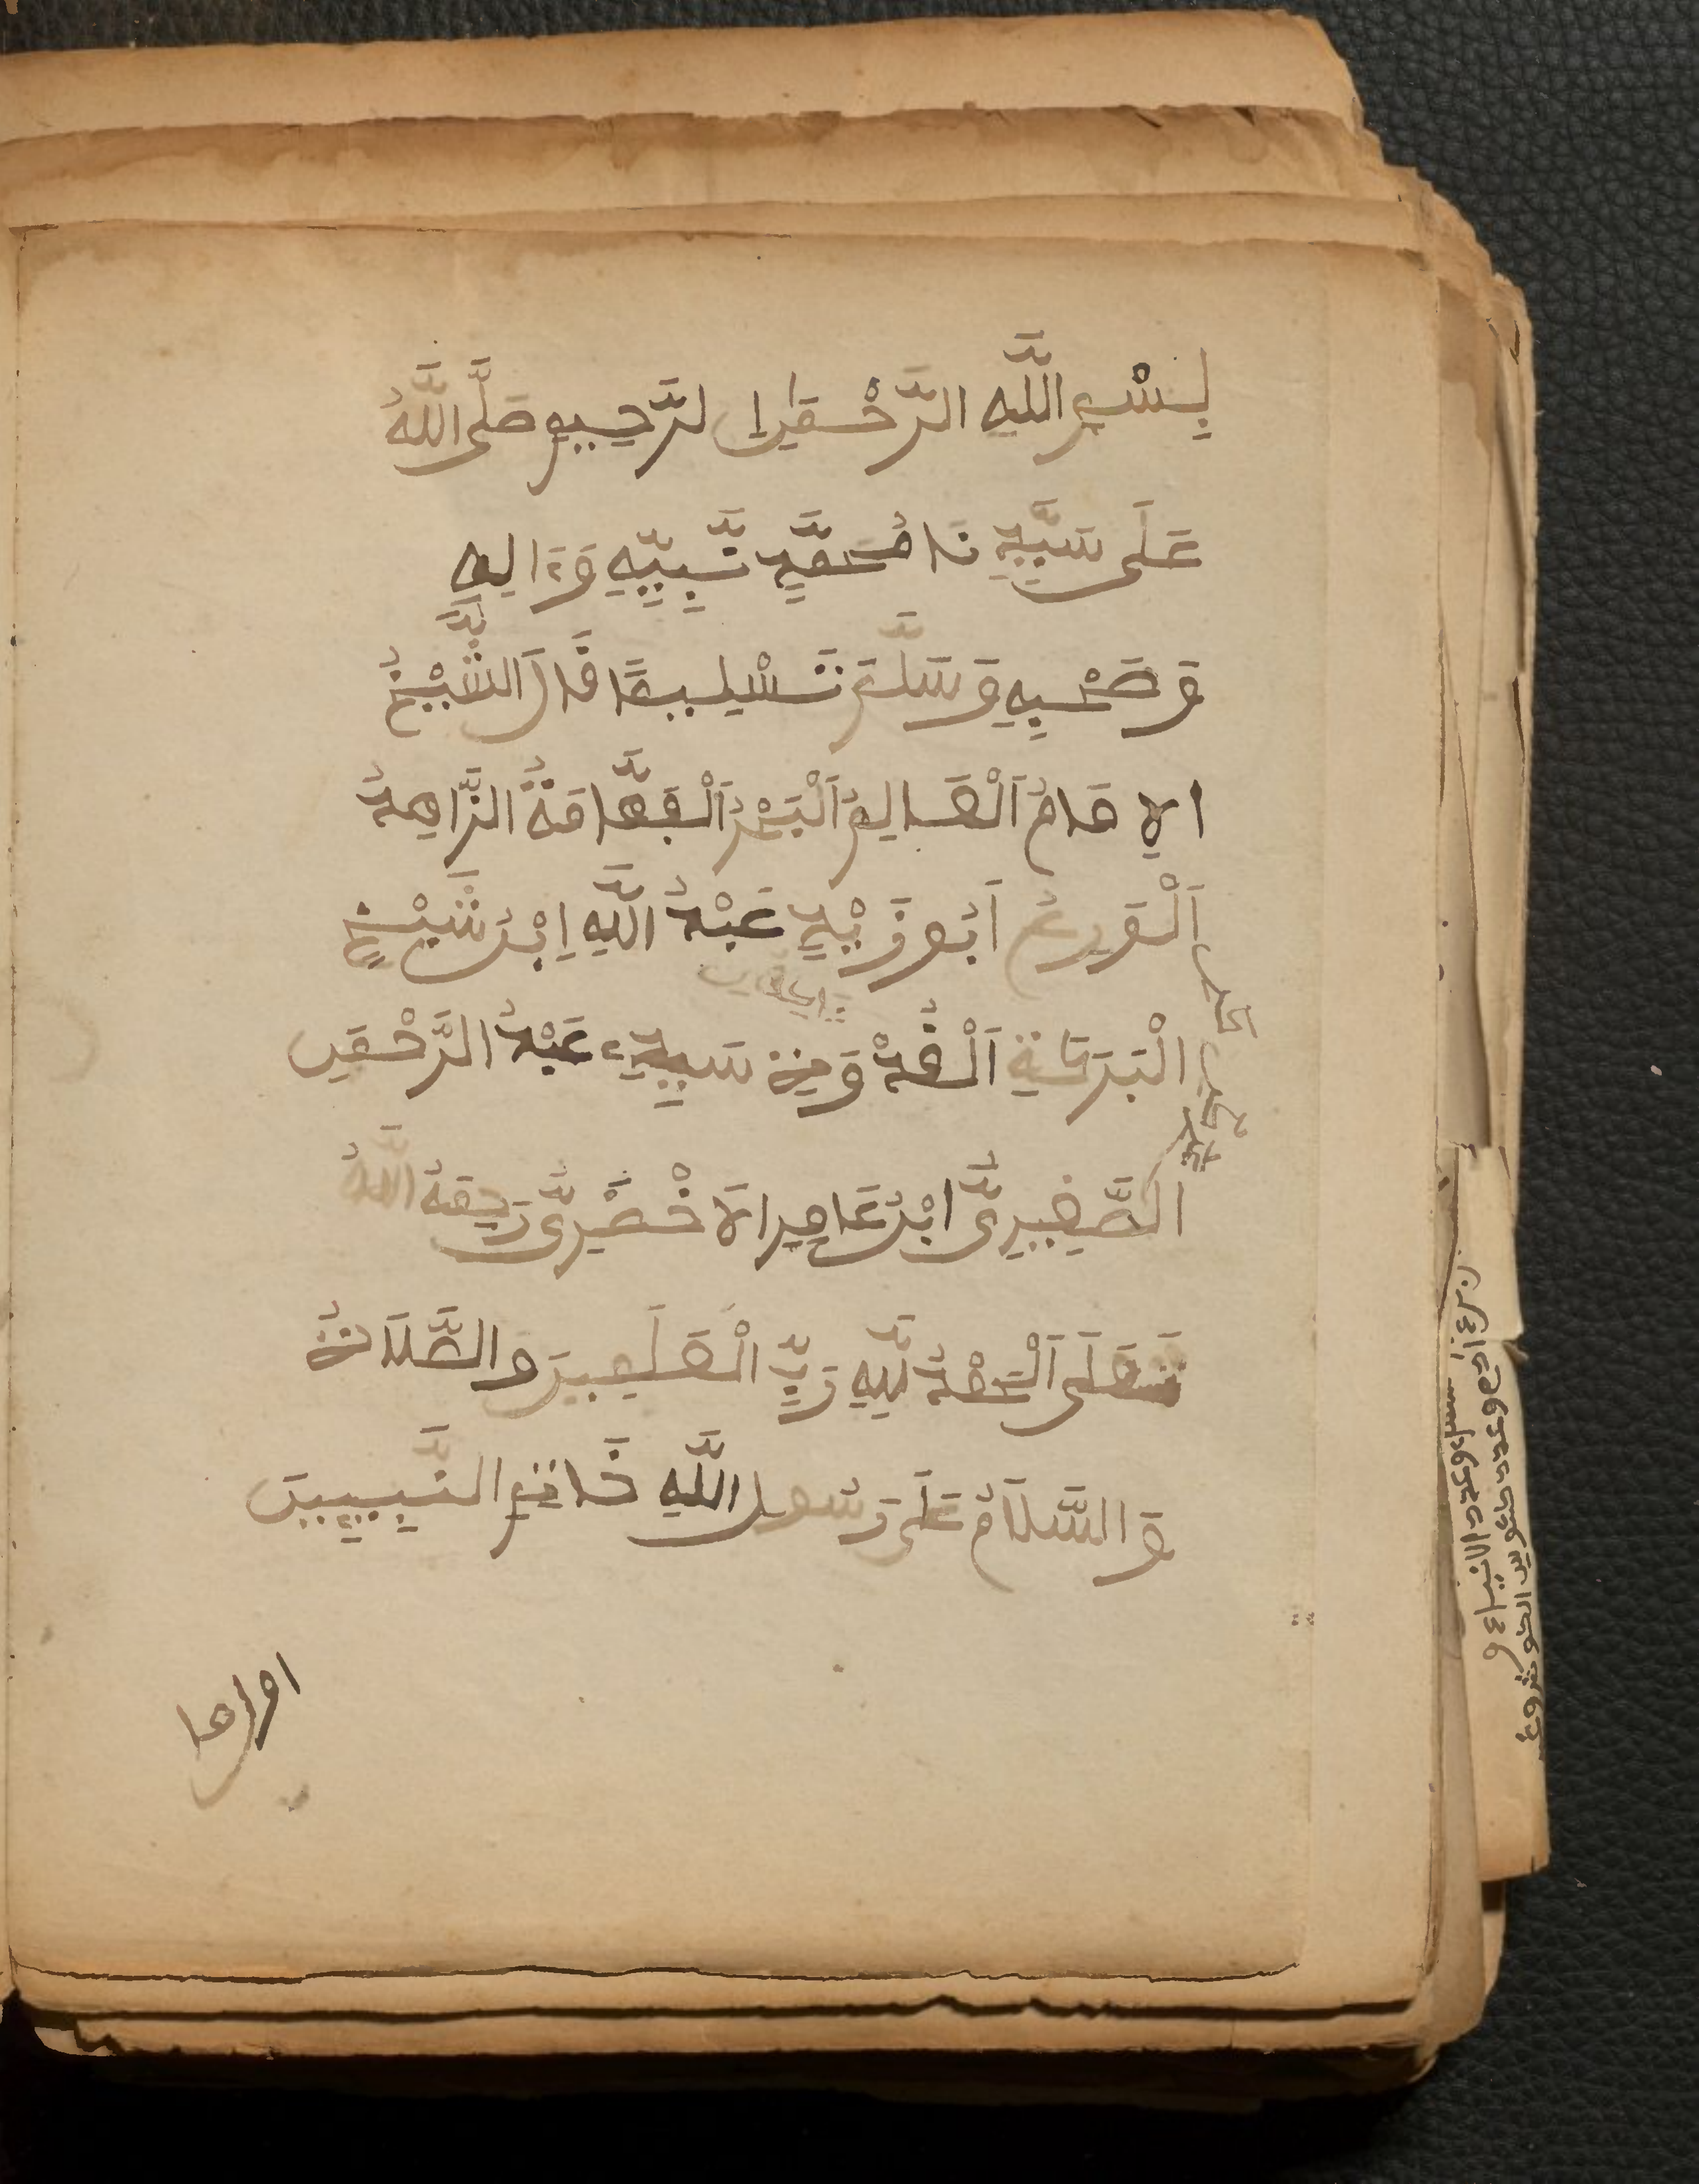 بِسْمِ اللَّهِ الرَّحْمَٰنِ الرَّحِيمِ صَلَّى اللَّهُ
عَلَى سَيِّدِنَا مُحَمَّدٍ نَّبِيِّهِ وَءَالِهِ
وَصَحْبِهِ وَسَلَّمَ تَسْلِيمًا قَالَ الشَّيْخُ
الاِمَامُ اَلْعَالِمُ اَلْبَحْرُ اَلْفَهَّامَةُ الزَّاهِدُ
اَلْوَرِعُ اَبُو زَيْدٍ عَبْدُ اللَّهِ اِبْنُ شَيْخِ
الْبَرَكَةِ اَلْقُدْوَةِ سَيِّدِي عَبْدُ الرَّحْمَنِ
الصَّغِيرِيُّ ابْنُ عَامِرِ الاَخْضَرِيُّ رَحِمَهُ اللَّهُ
تَعَلَى اَلْحَمْدُ لِلَّهِ رَبِّ الْعَلَمِينَ وَالصَّلَاةُ
وَالسَّلَامُ عَلَى رَسُولِ اللَّهِ خَاتِمِ النَّبِيِينَ